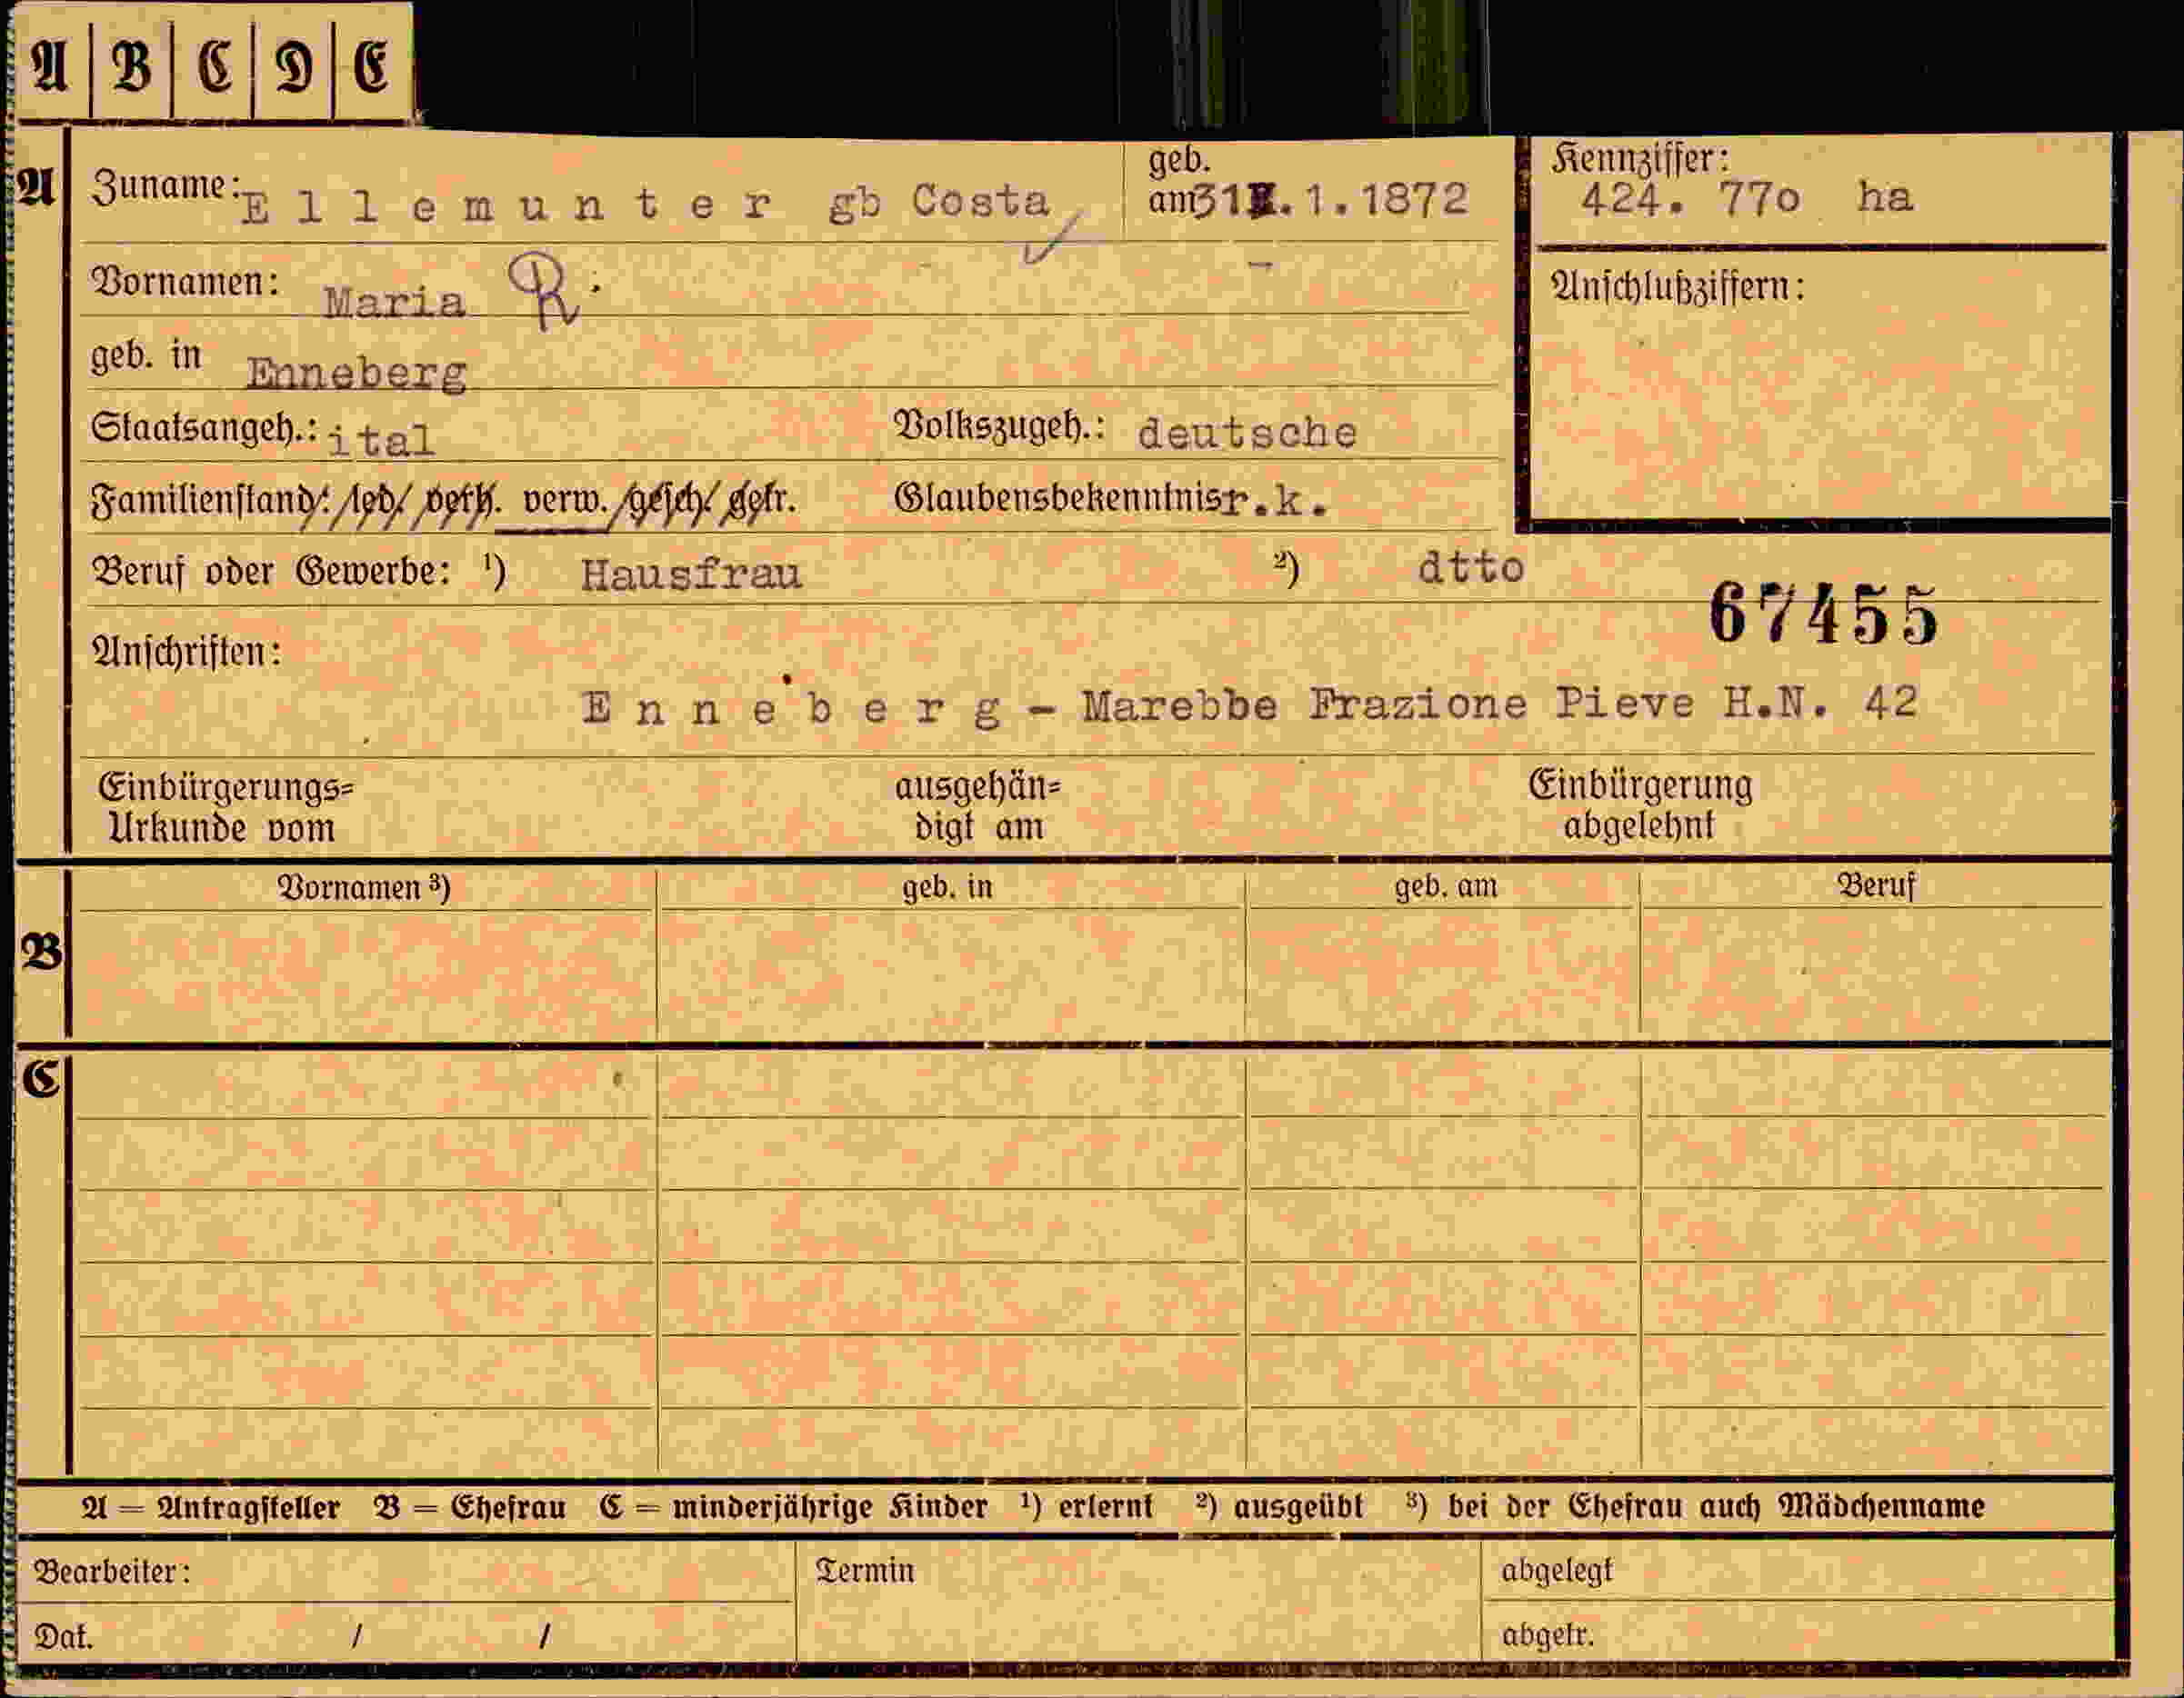 A B C D E
A Zuname: Ellemunter gb Costa geb. am 31.1.1872 Kennziffer: 424. 77o ha
Vornamen: Maria R. Anschlußziffern:
geb. in Enneberg
Staatsangeh.: ital Volkszugeh.: deutsche
Familienstand: led. verh. verw. gesch. getr. Glaubensbekenntnis r.k.
Beruf oder Gewerbe: ¹) Hausfrau ²) dtto
67455
Anschriften:
Enneberg - Marebbe Frazione Pieve H.N. 42
Einbürgerungs= ausgehän= Einbürgerung
Urkunde vom digt am abgelehnt
Vornamen ³) geb. in geb. am Beruf
B
C
A = Antragsteller B = Ehefrau C = minderjährige Kinder ¹) erlernt ²) ausgeübt ³) bei der Ehefrau auch Mädchenname
Bearbeiter: Termin abgelegt
Dat. / / abgetr.